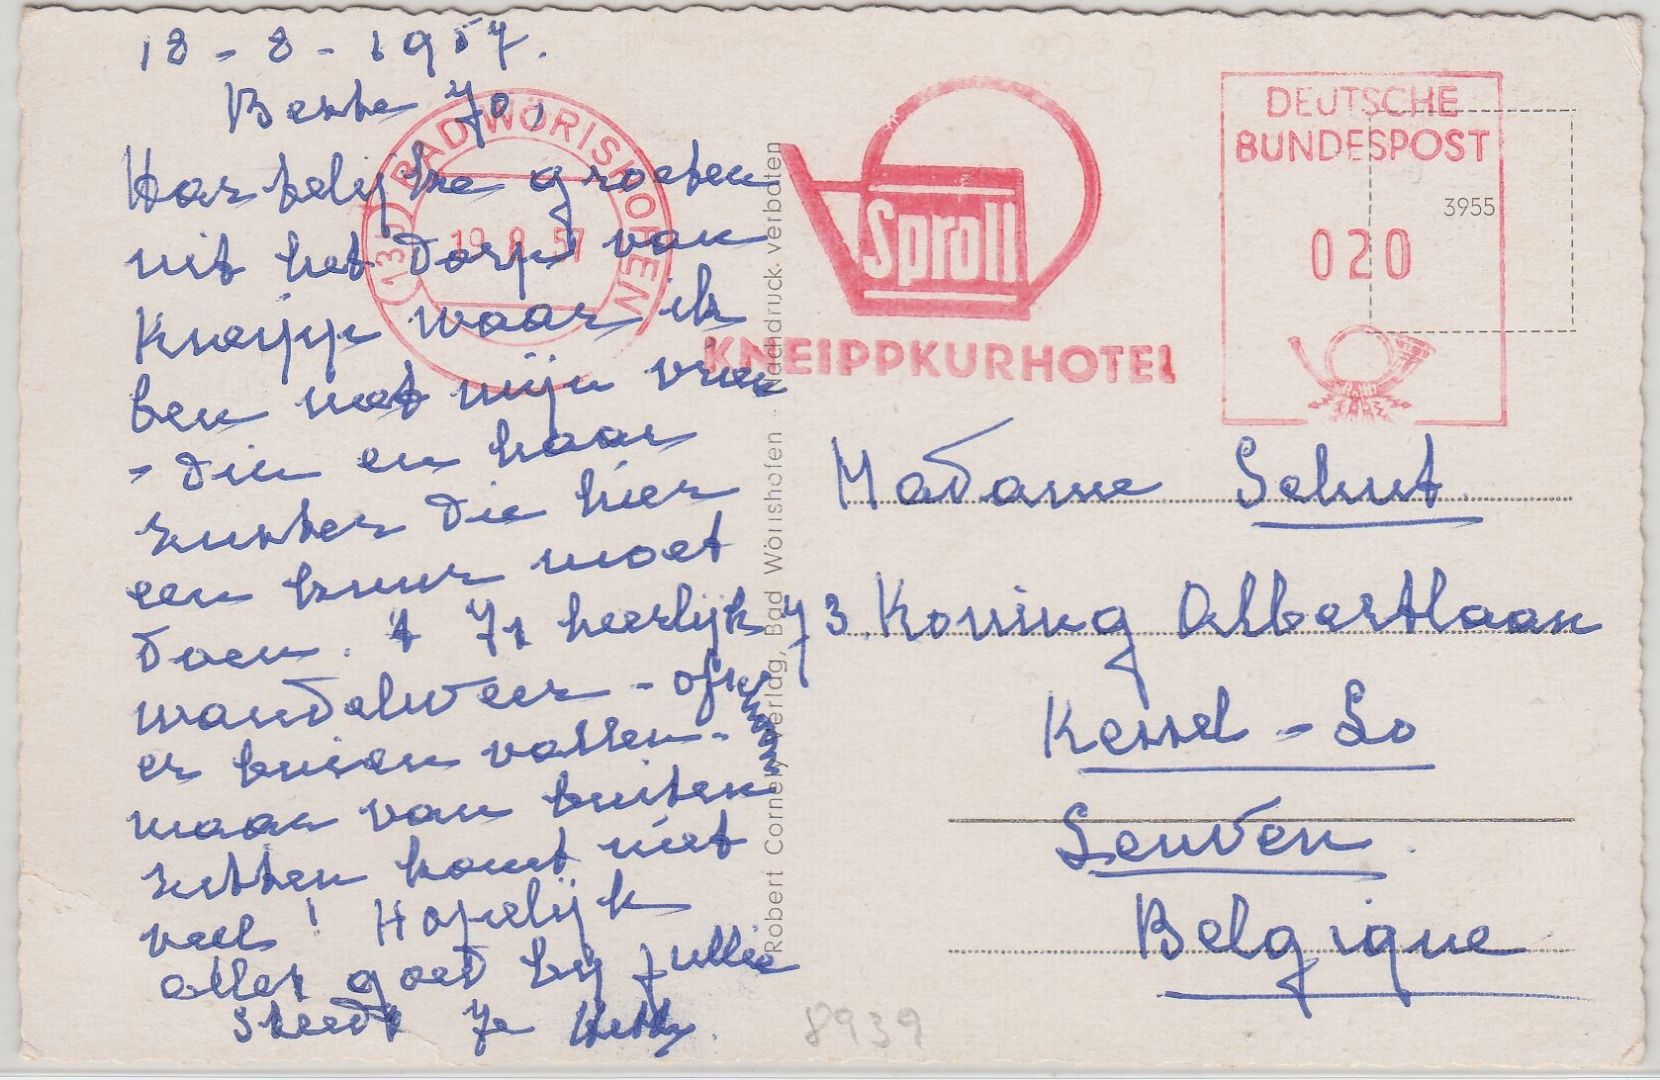 18-8-1957.
Beste Jo,
Hartelijke groeten
uit het dorp van
Kneipp waar ik
ben met mijn vrien
- din en haar
zuster die hier
een kuur moet
doen. 't Is heerlijk
wandelweer - 
er buien vallen -
maar van buiten
zitten komt niet
veel! Hopelijk
alles goed bij jullie
Steeds je Hetty.
(13b) BAD WÖRISHOFEN
19.8.57
Sproll
KNEIPPKURHOTEL
DEUTSCHE
BUNDESPOST
020
3955
Robert Cornely Verlag, Bad Wörishofen · Nachdruck verboten
Madame Schut
73 Koning Albertlaan
Kessel-Lo
Leuven
Belgique
8939